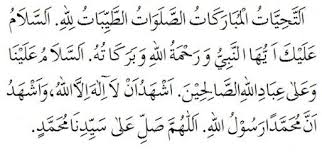 اَلتَّحِيَّاتُ الْمُبَارَكَاتُ الصَّلَوَاتُ الطَّيِّبَاتُ لِلّٰهِ. اَلسَّلَامُ
عَلَيْكَ اَيُّهَا النَّبِيُّ وَرَحْمَةُ اللهِ وَبَرَكَاتُهُ. اَلسَّلَامُ عَلَيْنَا
وَعَلٰى عِبَادِ اللهِ الصَّالِحِيْنَ. اَشْهَدُ اَنْ لَآ اِلٰهَ اِلَّا اللهُ، وَاَشْهَدُ
اَنَّ مُحَمَّدًا رَسُوْلُ اللهِ. اَللّٰهُمَّ صَلِّ عَلٰى سَيِّدِنَا مُحَمَّدٍ.